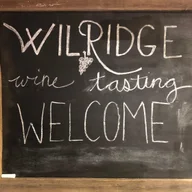 WILRIDGE
wine tasting
WELCOME